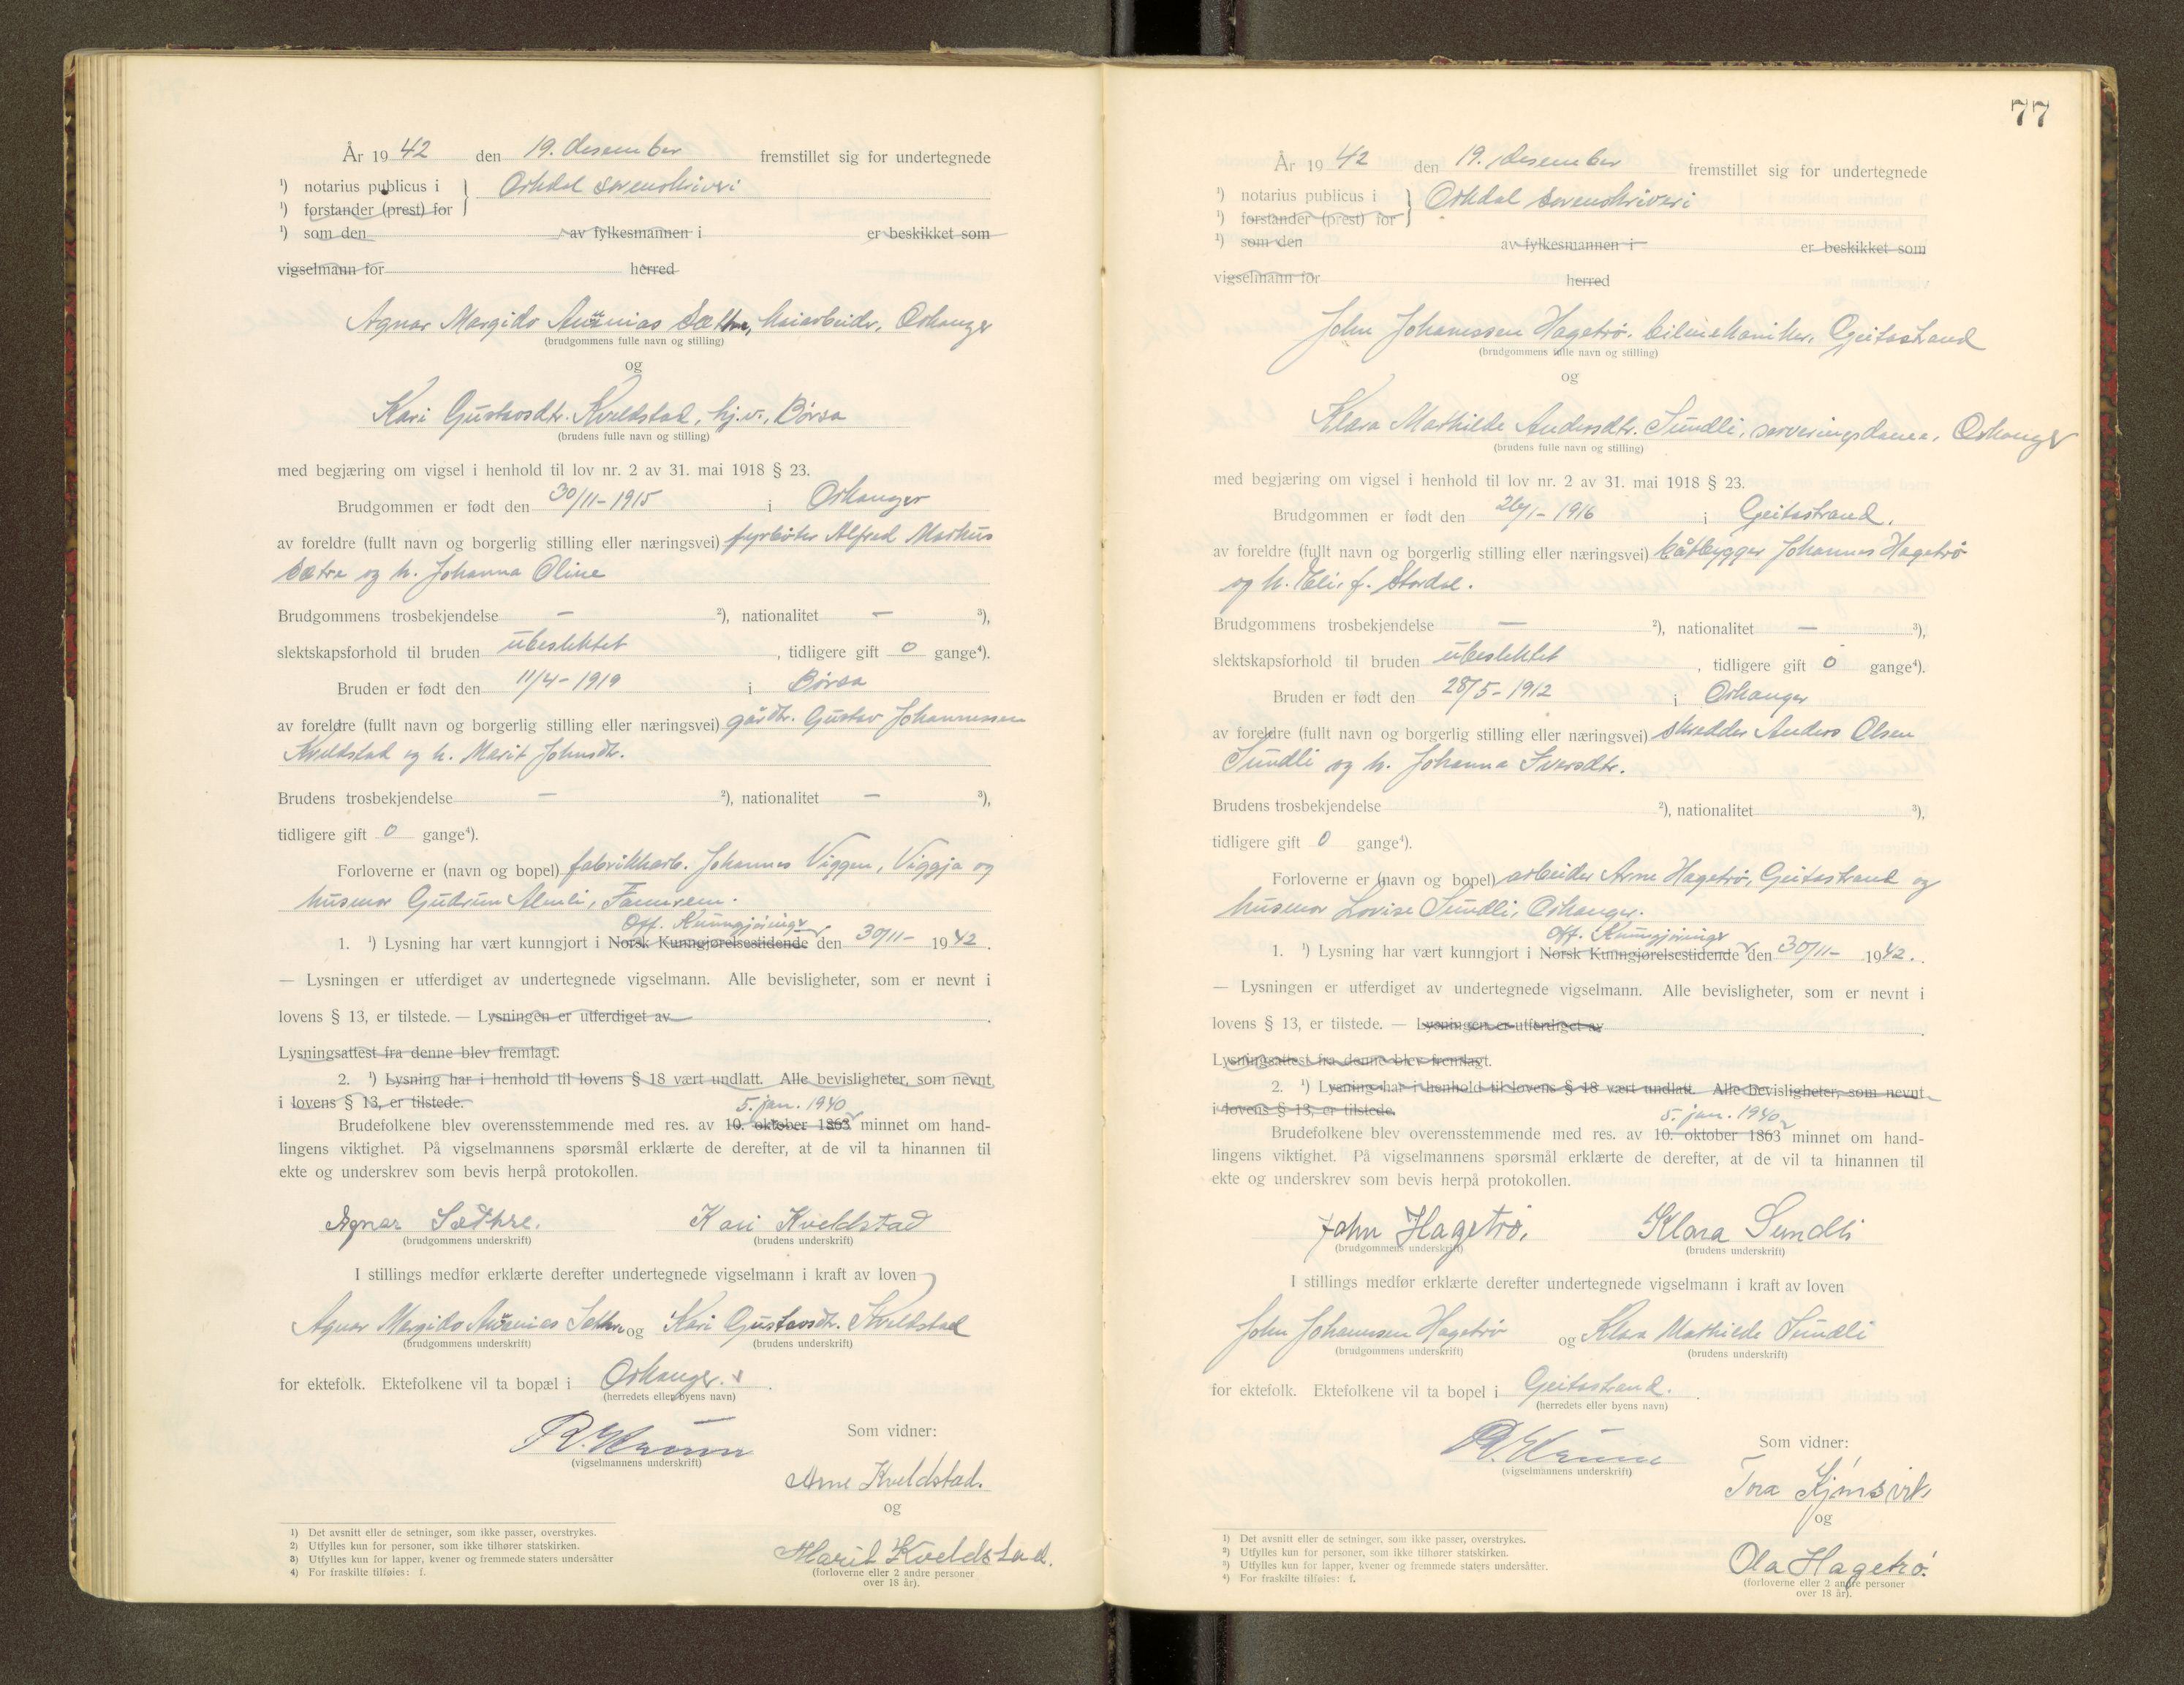 År 1942 den 19. desember fremstillet sig for undertegnede
¹) notarius publicus i } Orkdal sorenskriveri
¹) forstander (prest) for
¹) som den av fylkesmannen i er beskikket som
vigselmann for herred
Agnar Margido Sæthre, kaiarbeider, Orkanger
(brudgommens fulle navn og stilling)
og
Kari Gustavsdtr. Kveldstad, hj.v., Børsa
(brudens fulle navn og stilling)
med begjæring om vigsel i henhold til lov nr. 2 av 31. mai 1918 § 23.
Brudgommen er født den 30/11-1915 i Orkanger
av foreldre (fullt navn og borgerlig stilling eller næringsvei) fyrbøter Alfred Markus
Sætre og h. Johanna Oline
Brudgommens trosbekjendelse — ²), nationalitet — ³),
slektskapsforhold til bruden ubeslektet, tidligere gift 0 gange⁴).
Bruden er født den 11/4-1919 i Børsa
av foreldre (fullt navn og borgerlig stilling eller næringsvei) gårdbr. Gustav Johannessen
Kveldstad og h. Marit Johnsdtr.
Brudens trosbekjendelse — ²), nationalitet — ³),
tidligere gift 0 gange⁴).
Forloverne er (navn og bopel) fabrikkarb. Johannes Viggen, Viggja og
husmor Gudrun Almli, Fannrem.
Off. Kunngjøringer
1. ¹) Lysning har vært kunngjort i Norsk Kunngjørelsestidende den 30/11- 1942.
— Lysningen er utferdiget av undertegnede vigselmann. Alle bevisligheter, som er nevnt i
lovens § 13, er tilstede. — Lysningen er utferdiget av
Lysningsattest fra denne blev fremlagt.
2. ¹) Lysning har i henhold til lovens § 18 vært undlatt. Alle bevisligheter, som nevnt
i lovens § 13, er tilstede.
5. jan. 1940
Brudefolkene blev overensstemmende med res. av 10. oktober 1863 minnet om hand-
lingens viktighet. På vigselmannens spørsmål erklærte de derefter, at de vil ta hinannen til
ekte og underskrev som bevis herpå protokollen.
Agnar Sæthre. Kari Kveldstad
(brudgommens underskrift) (brudens underskrift)
I stillings medfør erklærte derefter undertegnede vigselmann i kraft av loven
Agnar Margido Sæthre og Kari Gustavsdtr. Kveldstad
(brudgommens underskrift) (brudens underskrift)
for ektefolk. Ektefolkene vil ta bopæl i Orkanger.
(herredets eller byens navn)
(vigselmannens underskrift)
Som vidner:
Arne Kveldstad.
og
Marit Kveldstad.
(forloverne eller 2 andre personer
over 18 år).
1) Det avsnitt eller de setninger, som ikke passer, overstrykes.
2) Utfylles kun for personer, som ikke tilhører statskirken.
3) Utfylles kun for lapper, kvener og fremmede staters undersåtter
4) For fraskilte tilføies: f.
77
År 1942 den 19. desember fremstillet sig for undertegnede
¹) notarius publicus i } Orkdal sorenskriveri
¹) forstander (prest) for
¹) som den av fylkesmannen i er beskikket som
vigselmann for herred
John Johanssen Hagetrø, bilmekaniker, Geitastrand
(brudgommens fulle navn og stilling)
og
Klara Mathilde Andersdtr. Sundli, serveringsdame, Orkanger
(brudens fulle navn og stilling)
med begjæring om vigsel i henhold til lov nr. 2 av 31. mai 1918 § 23.
Brudgommen er født den 26/1-1916 i Geitastrand.
av foreldre (fullt navn og borgerlig stilling eller næringsvei) båtbygger Johannes Hagetrø
og h. Eli, f. Stordal.
Brudgommens trosbekjendelse — ²), nationalitet — ³),
slektskapsforhold til bruden ubeslektet, tidligere gift 0 gange⁴).
Bruden er født den 28/5-1912 i Orkanger
av foreldre (fullt navn og borgerlig stilling eller næringsvei) skredder Anders Olsen
Sundli og h. Johanna Iversdtr.
Brudens trosbekjendelse ²), nationalitet ³),
tidligere gift 0 gange⁴).
Forloverne er (navn og bopel) arbeider Arne Hagetrø, Geitastrand og
husmor Lovise Sundli, Orkanger.
Off. Kunngjøringer
1. ¹) Lysning har vært kunngjort i Norsk Kunngjørelsestidende den 30/11- 1942.
— Lysningen er utferdiget av undertegnede vigselmann. Alle bevisligheter, som er nevnt i
lovens § 13, er tilstede. — Lysningen er utferdiget av
Lysningsattest fra denne blev fremlagt.
2. ¹) Lysning har i henhold til lovens § 18 vært undlatt. Alle bevisligheter, som nevnt
i lovens § 13, er tilstede.
5. jan. 1940
Brudefolkene blev overensstemmende med res. av 10. oktober 1863 minnet om hand-
lingens viktighet. På vigselmannens spørsmål erklærte de derefter, at de vil ta hinannen til
ekte og underskrev som bevis herpå protokollen.
John Hagetrø. Klara Sundli
(brudgommens underskrift) (brudens underskrift)
I stillings medfør erklærte derefter undertegnede vigselmann i kraft av loven
John Johannsen Hagetrø og Klara Mathilde Sundli
(brudgommens underskrift) (brudens underskrift)
for ektefolk. Ektefolkene vil ta bopel i Geitastrand.
(herredets eller byens navn)
(vigselmannens underskrift)
Som vidner:
Tora
og
Ola Hagetrø.
(forloverne eller 2 andre personer
over 18 år).
¹) Det avsnitt eller de setninger, som ikke passer, overstrykes.
²) Utfylles kun for personer, som ikke tilhører statskirken.
³) Utfylles kun for lapper, kvener og fremmede staters undersåtter.
⁴) For fraskilte tilføies: f.